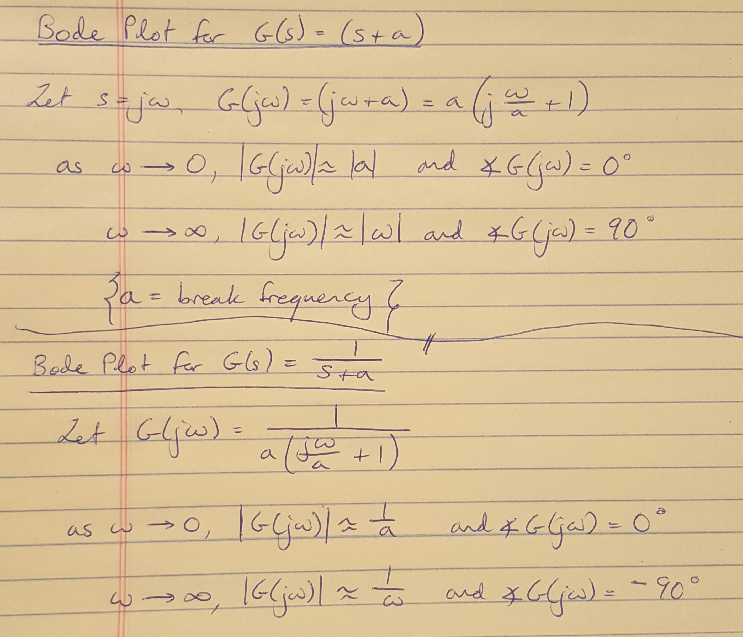 Bode Plot for G(s) = (s+a)
Let s = jω, G(jω) = (jω+a) = a (j ω/a + 1)
as ω → 0, |G(jω)| ≈ |a| and ∡G(jω) = 0°
ω → ∞, |G(jω)| ≈ |ω| and ∡G(jω) = 90°
{a = break frequency}
Bode Plot for G(s) = 1/(s+a)
Let G(jω) = 1/(a (jω/a + 1))
as ω → 0, |G(jω)| ≈ 1/a and ∡G(jω) = 0°
ω → ∞, |G(jω)| ≈ 1/ω and ∡G(jω) = -90°